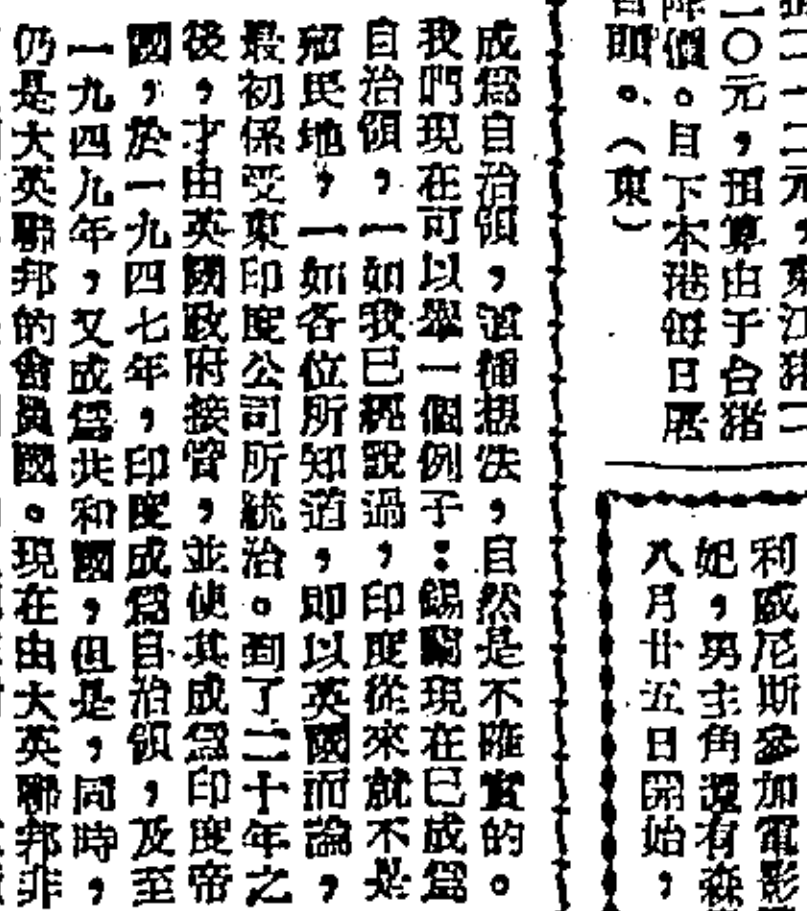 二一二元，東江猪二
一〇元，預算由于台猪
降價。目下本港每日屠
頭。（東）
利威尼斯參加電影
妃，男主角還有森
八月廿五日開始，
成爲自治領，這種想法，自然是不確實的。
我們現在可以舉一個例子：錫蘭現在已成爲
自治領，一如我已經說過，印度從來就不是
殖民地，一如各位所知道，即以英國而論，
最初係受東印度公司所統治。到了二十年之
後，才由英國政府接管，並使其成爲印度帝
國，於一九四七年，印度成爲自治領，及至
一九四九年，又成爲共和國，但是，同時，
仍是大英聯邦的會員國。現在由大英聯邦非